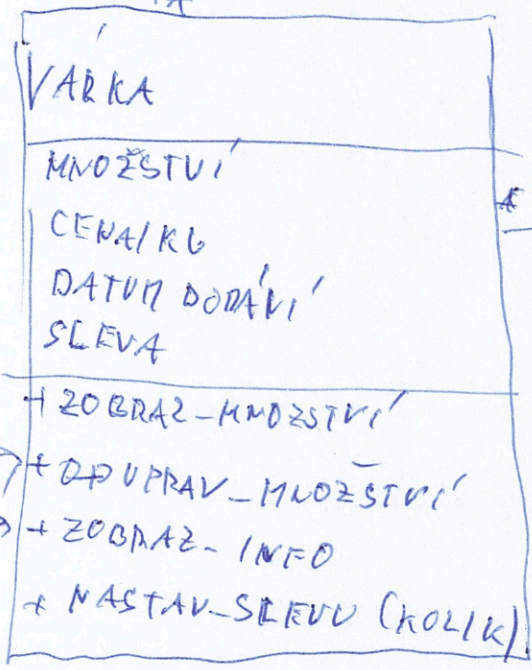 VÁRKA
MNOŽSTVÍ
CENA/KG
DATUM DODÁNÍ
SLEVA
+ ZOBRAZ_MNOZSTVÍ
+ UPRAV_MNOŽSTVÍ
+ ZOBRAZ_INFO
+ NASTAV_SLEVU (KOLIK)